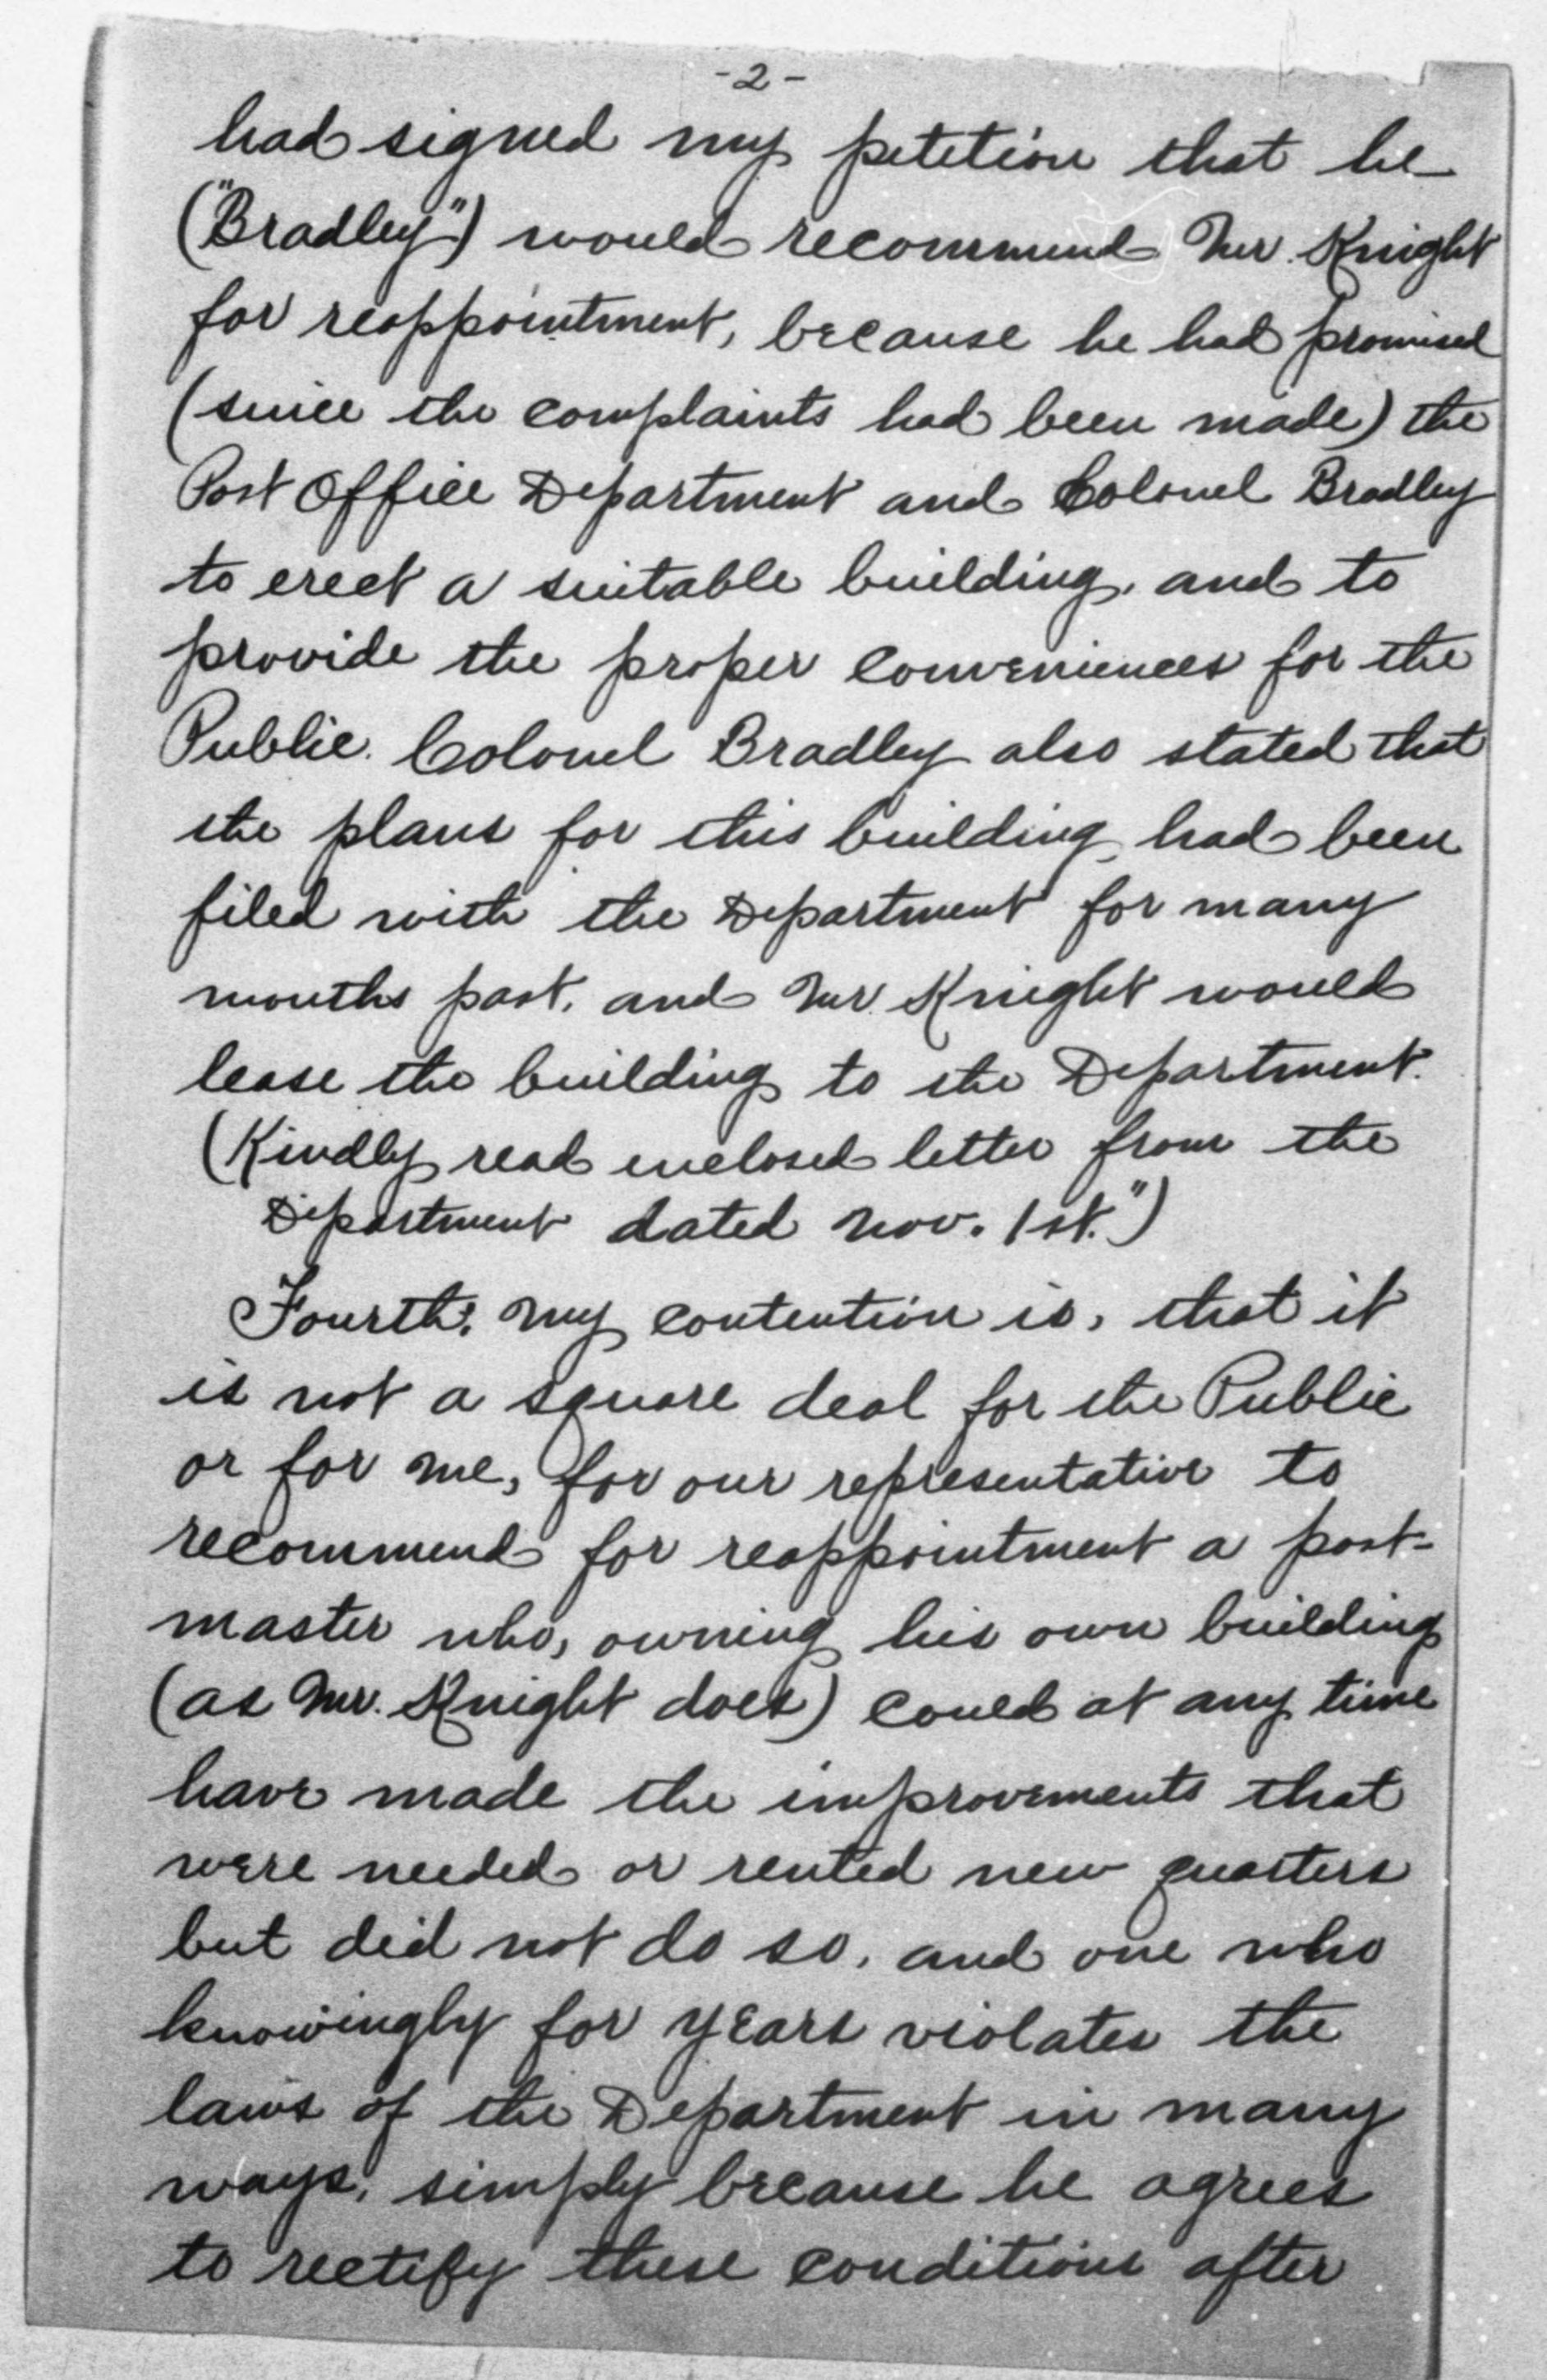 -2-
had signed my petition that he
("Bradley") would recommend Mr. Knight
for reappointment, because he had promised
(since the complaints had been made) the
Post Office Department and Colonel Bradley
to erect a suitable building, and to
provide the proper conveniences for the
Public. Colonel Bradley also stated that
the plans for this building, had been
filed with the Department for many
months past, and Mr. Knight would
lease the building to the Department.
(Kindly read enclosed letter from the
Department dated Nov. 1st.")
Fourth: My contention is, that it
is not a square deal for the Public
or for me, for our representative to
recommend for reappointment a post-
master who, owning his own building
(as Mr. Knight does) could at any time
have made the improvements that
were needed or rented new quarters
but did not do so, and one who
knowingly for years violates the
laws of the Department in many
ways, simply because he agrees
to rectify these conditions after